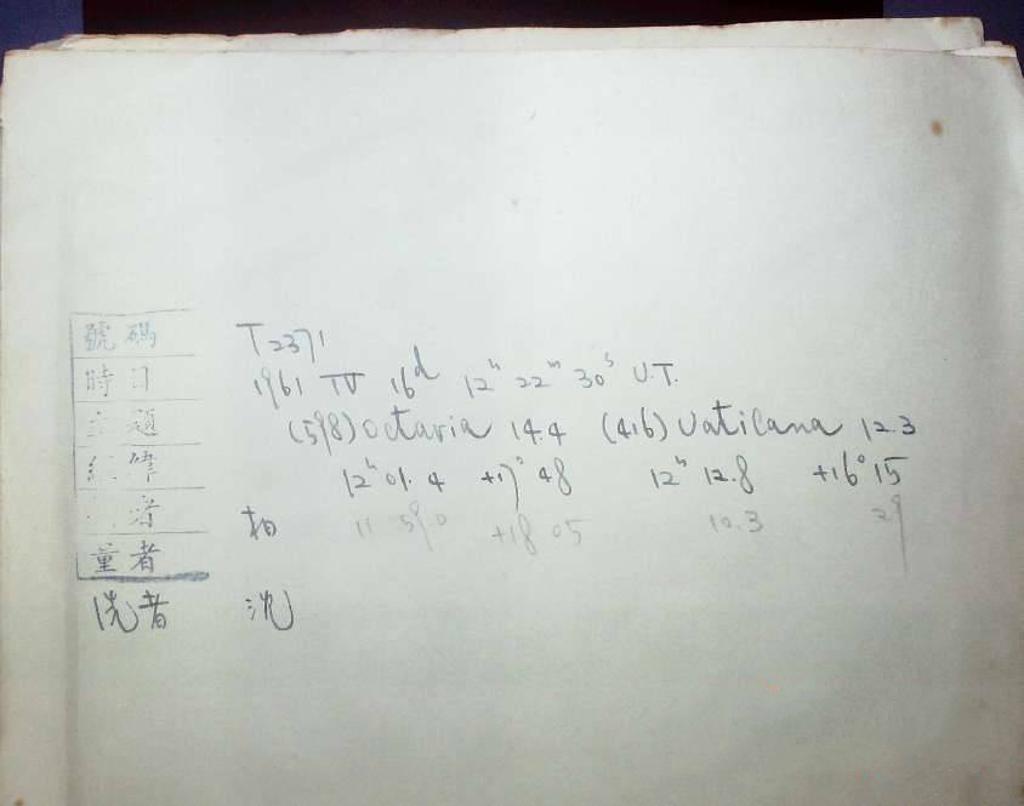 號碼 T2371
時日 1961 IV 16d 12h 22m 30s U.T.
主題 (598) Octavia 14.4 (416) Vaticana 12.3
經緯 12h 01.4 +17° 48 12h 12.8 +16° 15
者 柏 11 59.0 +18 05 10.3 29
量者
洗者 沈